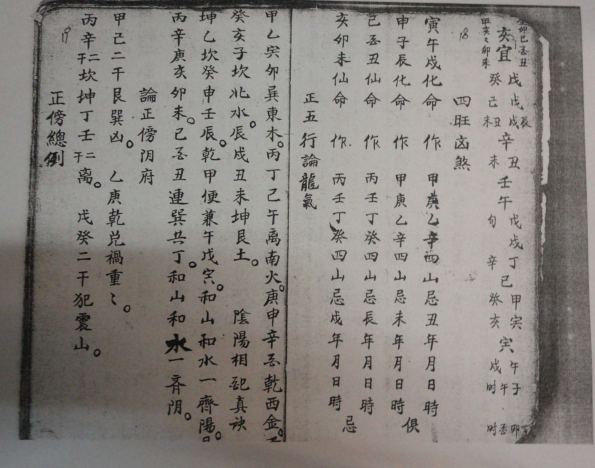 亥宜戊辰戊戌辛丑壬午戊戌丁巳甲寅午子
癸丑己未辛未旬辛癸亥寅戌時
18 四旺凶煞
寅午戌化命 作 甲庚乙辛四山忌丑年月日時
申子辰化命 作 甲庚乙辛四山忌未年月日時 俱
巳丑丑仙命 作 丙壬丁癸四山忌辰年月日時
亥卯未仙命 作 丙壬丁癸四山忌戌年月日時 忌
正五行論龍氣
甲乙寅卯巽東木。丙丁己午离南火。庚申辛丑乾西金。
癸亥子坎北水。辰戌丑未坤艮土。 陰陽相配真訣
坤乙坎癸申壬辰。乾甲便兼午戌寅。和山和水一齊陽。
丙辛庚亥卯未。己丑丑連巽共丁。和山和水一斉阴。
論正傍阴府
甲己二干艮巽凶。 乙庚乾兑禍重重。
丙辛二干坎坤丁壬二干离。 戊癸二干犯震山。
19 正傍總例